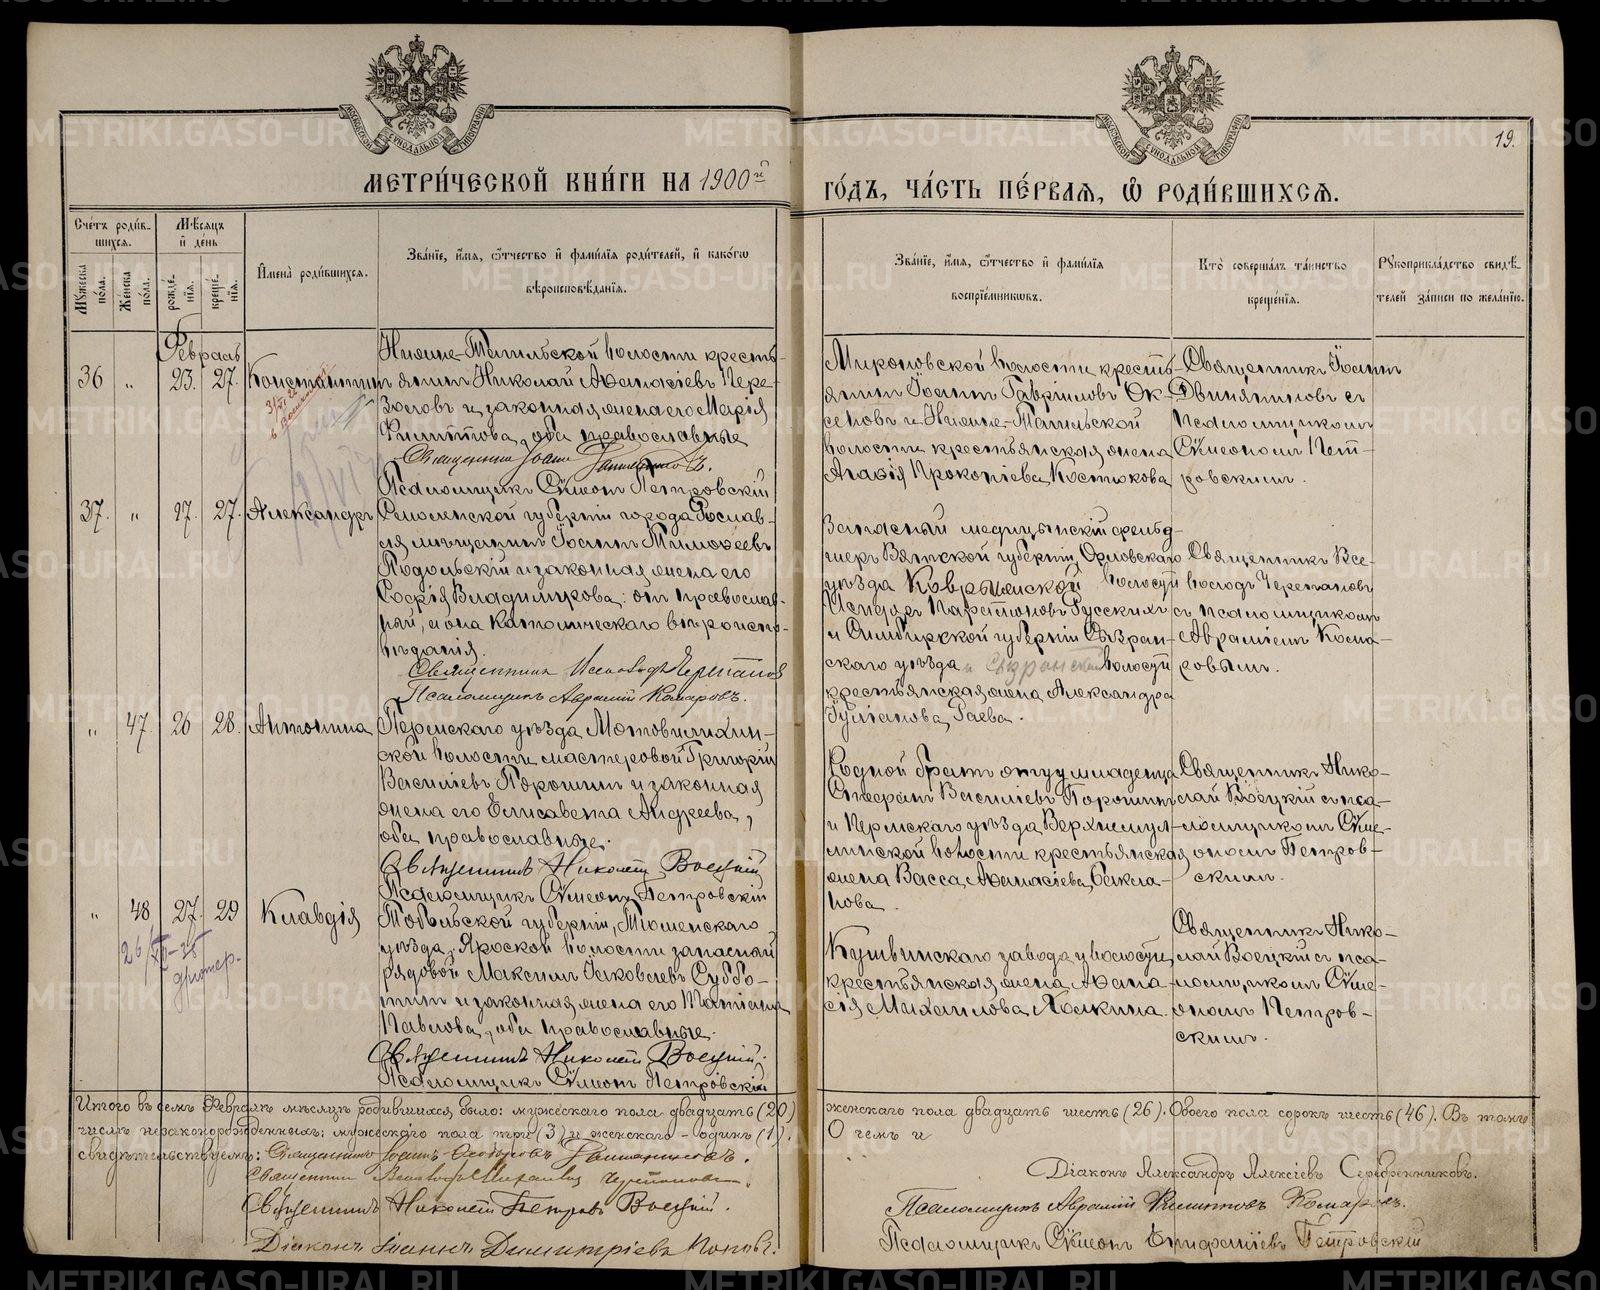 МЕТРИ́ЧЕСКОЙ КНИ́ГИ НА 1900й
ГО́ДЪ, ЧА́СТЬ ПЕ́РВАѦ, Ѡ҆ РОДИ́ВШИХСѦ.
19.
Сче́тъ роди́в-
шихся.
Мѣ́сяцъ
и҆ де́нь
И҆мена̀ роди́вшихся.
Зва́нїе, и҆́мя, ѻ҆́тчество и҆ фами́лїя роди́телей, и҆ како́гѡ
вѣроисповѣ́данїя.
Зва́нїе, и҆́мя, ѻ҆́тчество и҆ фами́лїя
воспрїе́мникѡвъ.
Кто̀ соверша́лъ та́инство
креще́нїя.
Рꙋкоприкла́дство свидѣ́-
телей за́писи по жела́нїю.
Мꙋ́жеска
по́ла.
Же́нска
по́ла.
рожде́-
нїя.
креще́-
нїя.
Февраль
36 „ 23. 27. Константинъ
Нижне-Тагильской волости кресть-
янинъ Николай Аѳанасіевъ Пере-
золовъ и законная жена его Марія
Филиппова, оба православные
Священникъ Іоаннъ
Псаломщикъ Сѵмеонъ Петровскій
Мироновской волости кресть-
янинъ Іоаннъ Гавріиловъ Ок-
сеновъ и Нижне-Тагильской
волости крестьянская жена
Агаѳія Прокопіева Костюкова
Священникъ Іоаннъ
Двиняниновъ съ
псаломщикомъ
Сѵмеономъ Пет-
ровскимъ.
37. „ 17. 27. Александръ
Смоленской губерніи города Рослав-
ля мѣщанинъ Іоаннъ Тимоѳеевъ
Подольскій и законная жена его
Софія Владимирова: онъ православ-
ный, а она католическаго вѣроиспо-
вѣданія.
Священникъ Всеволодъ Черепановъ
Псаломщикъ Аврамій Комаровъ.
Запасный медицинскій фельд-
шеръ Вятской губерніи Орловскаго
уѣзда Коврыжской волости
Парѳеновъ Русскихъ
и Симбирской губерніи Сызран-
скаго уѣзда и Сызранской волости
крестьянская жена Александра
Гаева.
Священникъ Все-
володъ Черепановъ
съ псаломщикомъ
Авраміемъ Кома-
ровымъ.
„ 47. 26 28. Антонина
Пермскаго уѣзда Мотовилихин-
ской волости мастеровой Григорій
Василіевъ Порошинъ и законная
жена его Елисавета Андреева,
оба православные.
Священникъ Николай Воецкій
Псаломщикъ Сѵмеонъ Петровскій
Родной братъ отцу младенца
Стефанъ Василіевъ Порошинъ
и Пермскаго уѣзда Верхнемул-
линской волости крестьянская
жена Васса Аѳанасіева Бакла-
нова
Священникъ Нико-
лай Воецкій съ пса-
ломщикомъ Сѵме-
ономъ Петров-
скимъ.
„ 48 27. 29 Клавдія
Тобольской губерніи, Тюменскаго
уѣзда, Яроской волости запасный
рядовой Максимъ Іаковлевъ Суббо-
тинъ и законная жена его Татіана
Павлова, оба православные.
Священникъ Николай Воецкій.
Псаломщикъ Сѵмеонъ Петровскій
Кушвинскаго завода и волости
крестьянская жена Аѳана-
сія Михаилова Ялкина.
Священникъ Нико-
лай Воецкій съ пса-
ломщикомъ Сѵме-
ономъ Петров-
скимъ.
Итого въ семъ Февралѣ мѣсяцѣ родившихся было: мужескаго пола двадцать (20)
женскаго пола двадцать шесть (26). Обоего пола сорокъ шесть (46). Въ томъ
числѣ незаконорожденныхъ: мужескаго пола три (3) и женскаго - одинъ (1).
О чемъ и
свидѣтельствуемъ: Священникъ Іоаннъ
Священникъ Всеволодъ Михаиловъ Черепановъ.
Священникъ Николай Петровъ Воецкій.
Діаконъ Іоаннъ Димитріевъ Поповъ.
Діаконъ Александръ Алексіевъ Серебренниковъ.
Псаломщикъ Аврамій Филипповъ Комаровъ.
Псаломщикъ Сѵмеонъ Епифаніевъ Петровскій
METRIKI.GASO-URAL.RU